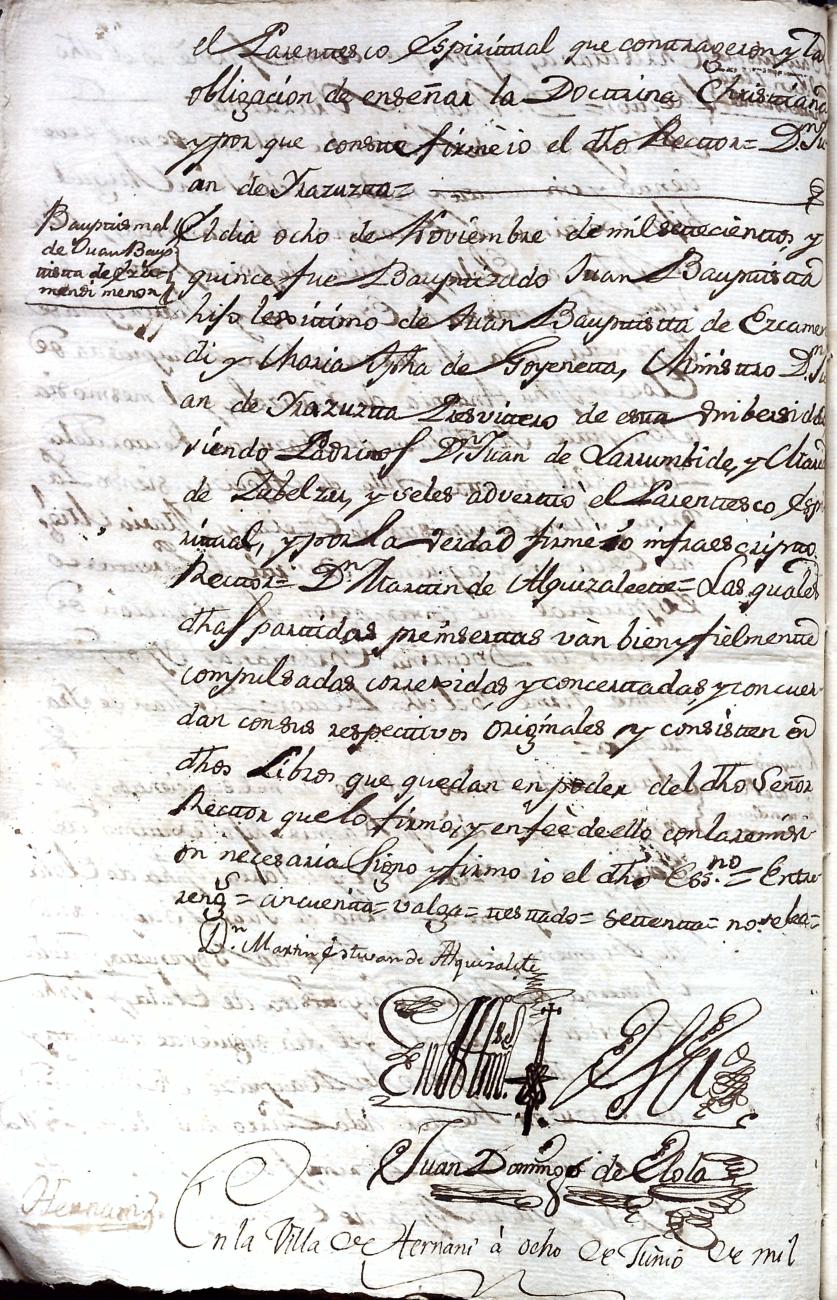 el Parentesco Espiritual que contraxeron y la
obligacion de enseñar la Doctrina Christiana
y por que conste firmè io el dho Rector= D.n Ju
an de Yrazuzta=
Bauptismal
de Juan Baup
tista de Ezca
mendi menor
El dia ocho de Noviembre de mil setecientos y
quince fue Bauptizado Juan Bauptista
hijo lessitimo de Juan Bauptista de Ezcamen
di y Maria Jpha de Goyeneta, Ministro D.n Ju
an de Yrazuzta Presvitero de esta Vnibersidad
siendo Padrinos D.n Juan de Larrumbide, y Maria
de Zabelzu, y seles advertiò el Parentesco Espi
ritual, y por la verdad firmè io infraescripto
Rector= D.n Martin de Alquizaleete= Las quales
dhas partidas preinsertas vàn bien y fielmente
compulsadas correxidas y concertadas, y concuer
dan consus respectivos originales y consisten en
dhos Libros que quedan en poder del dho Señor
Rector que lo firmo, y en feè de ello con la remisi
on necesaria signo y firmo io el dho Ess.no= Entre
reng.s= cinquenta= valga= testado= settenta= no se lea=
D.n Martin Estevan de Alquizalete
En testim.o de Verdad
Juan Domingo de Elola
Hernani
En la Villa de Hernani à ocho de Junio de mil